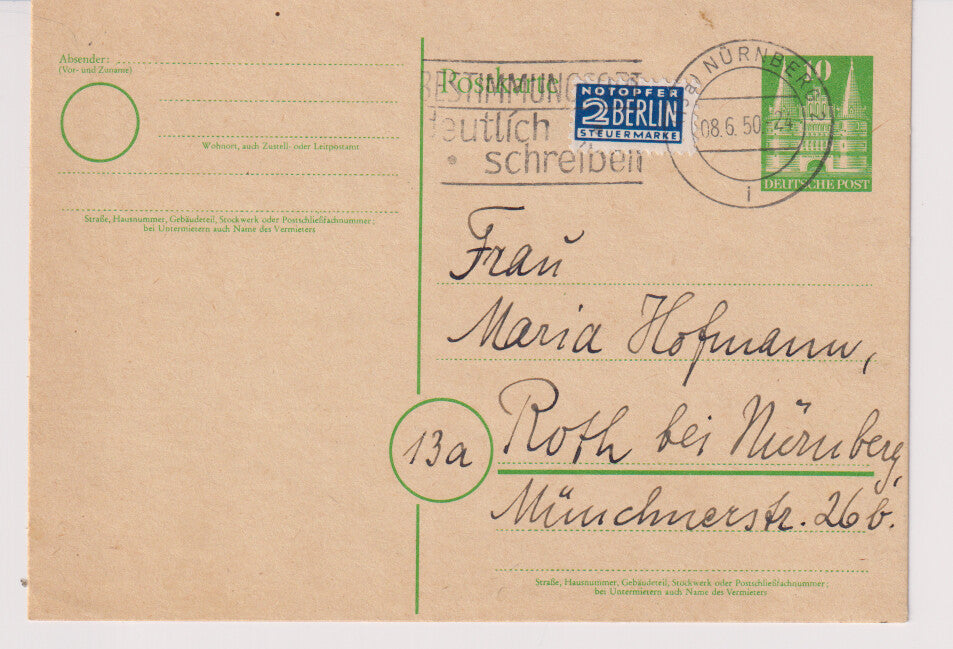 Absender:
(Vor- und Zuname)
Wohnort, auch Zustell- oder Leitpostamt
Straße, Hausnummer, Gebäudeteil, Stockwerk oder Postschließfachnummer;
bei Untermietern auch Name des Vermieters
Postkarte
deutlich
schreiben
NOTOPFER
2 BERLIN
STEUERMARKE
NÜRNBERG 2
08.6.50
i
10
DEUTSCHE POST
Frau
Maria Hofmann,
13a
Roth bei Nürnberg,
Münchnerstr. 26b.
Straße, Hausnummer, Gebäudeteil, Stockwerk oder Postschließfachnummer;
bei Untermietern auch Name des Vermieters